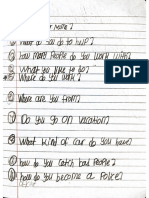 r name?
② what do you do to help?
③ how many People do you work with?
④ What you like to do?
⑤ Where do you work?
⑥ Where are you from?
⑦ Do you go on vacation?
⑧ What kind of car do you have?
⑨ how do you catch bad People?
⑩ how do you become a Police?